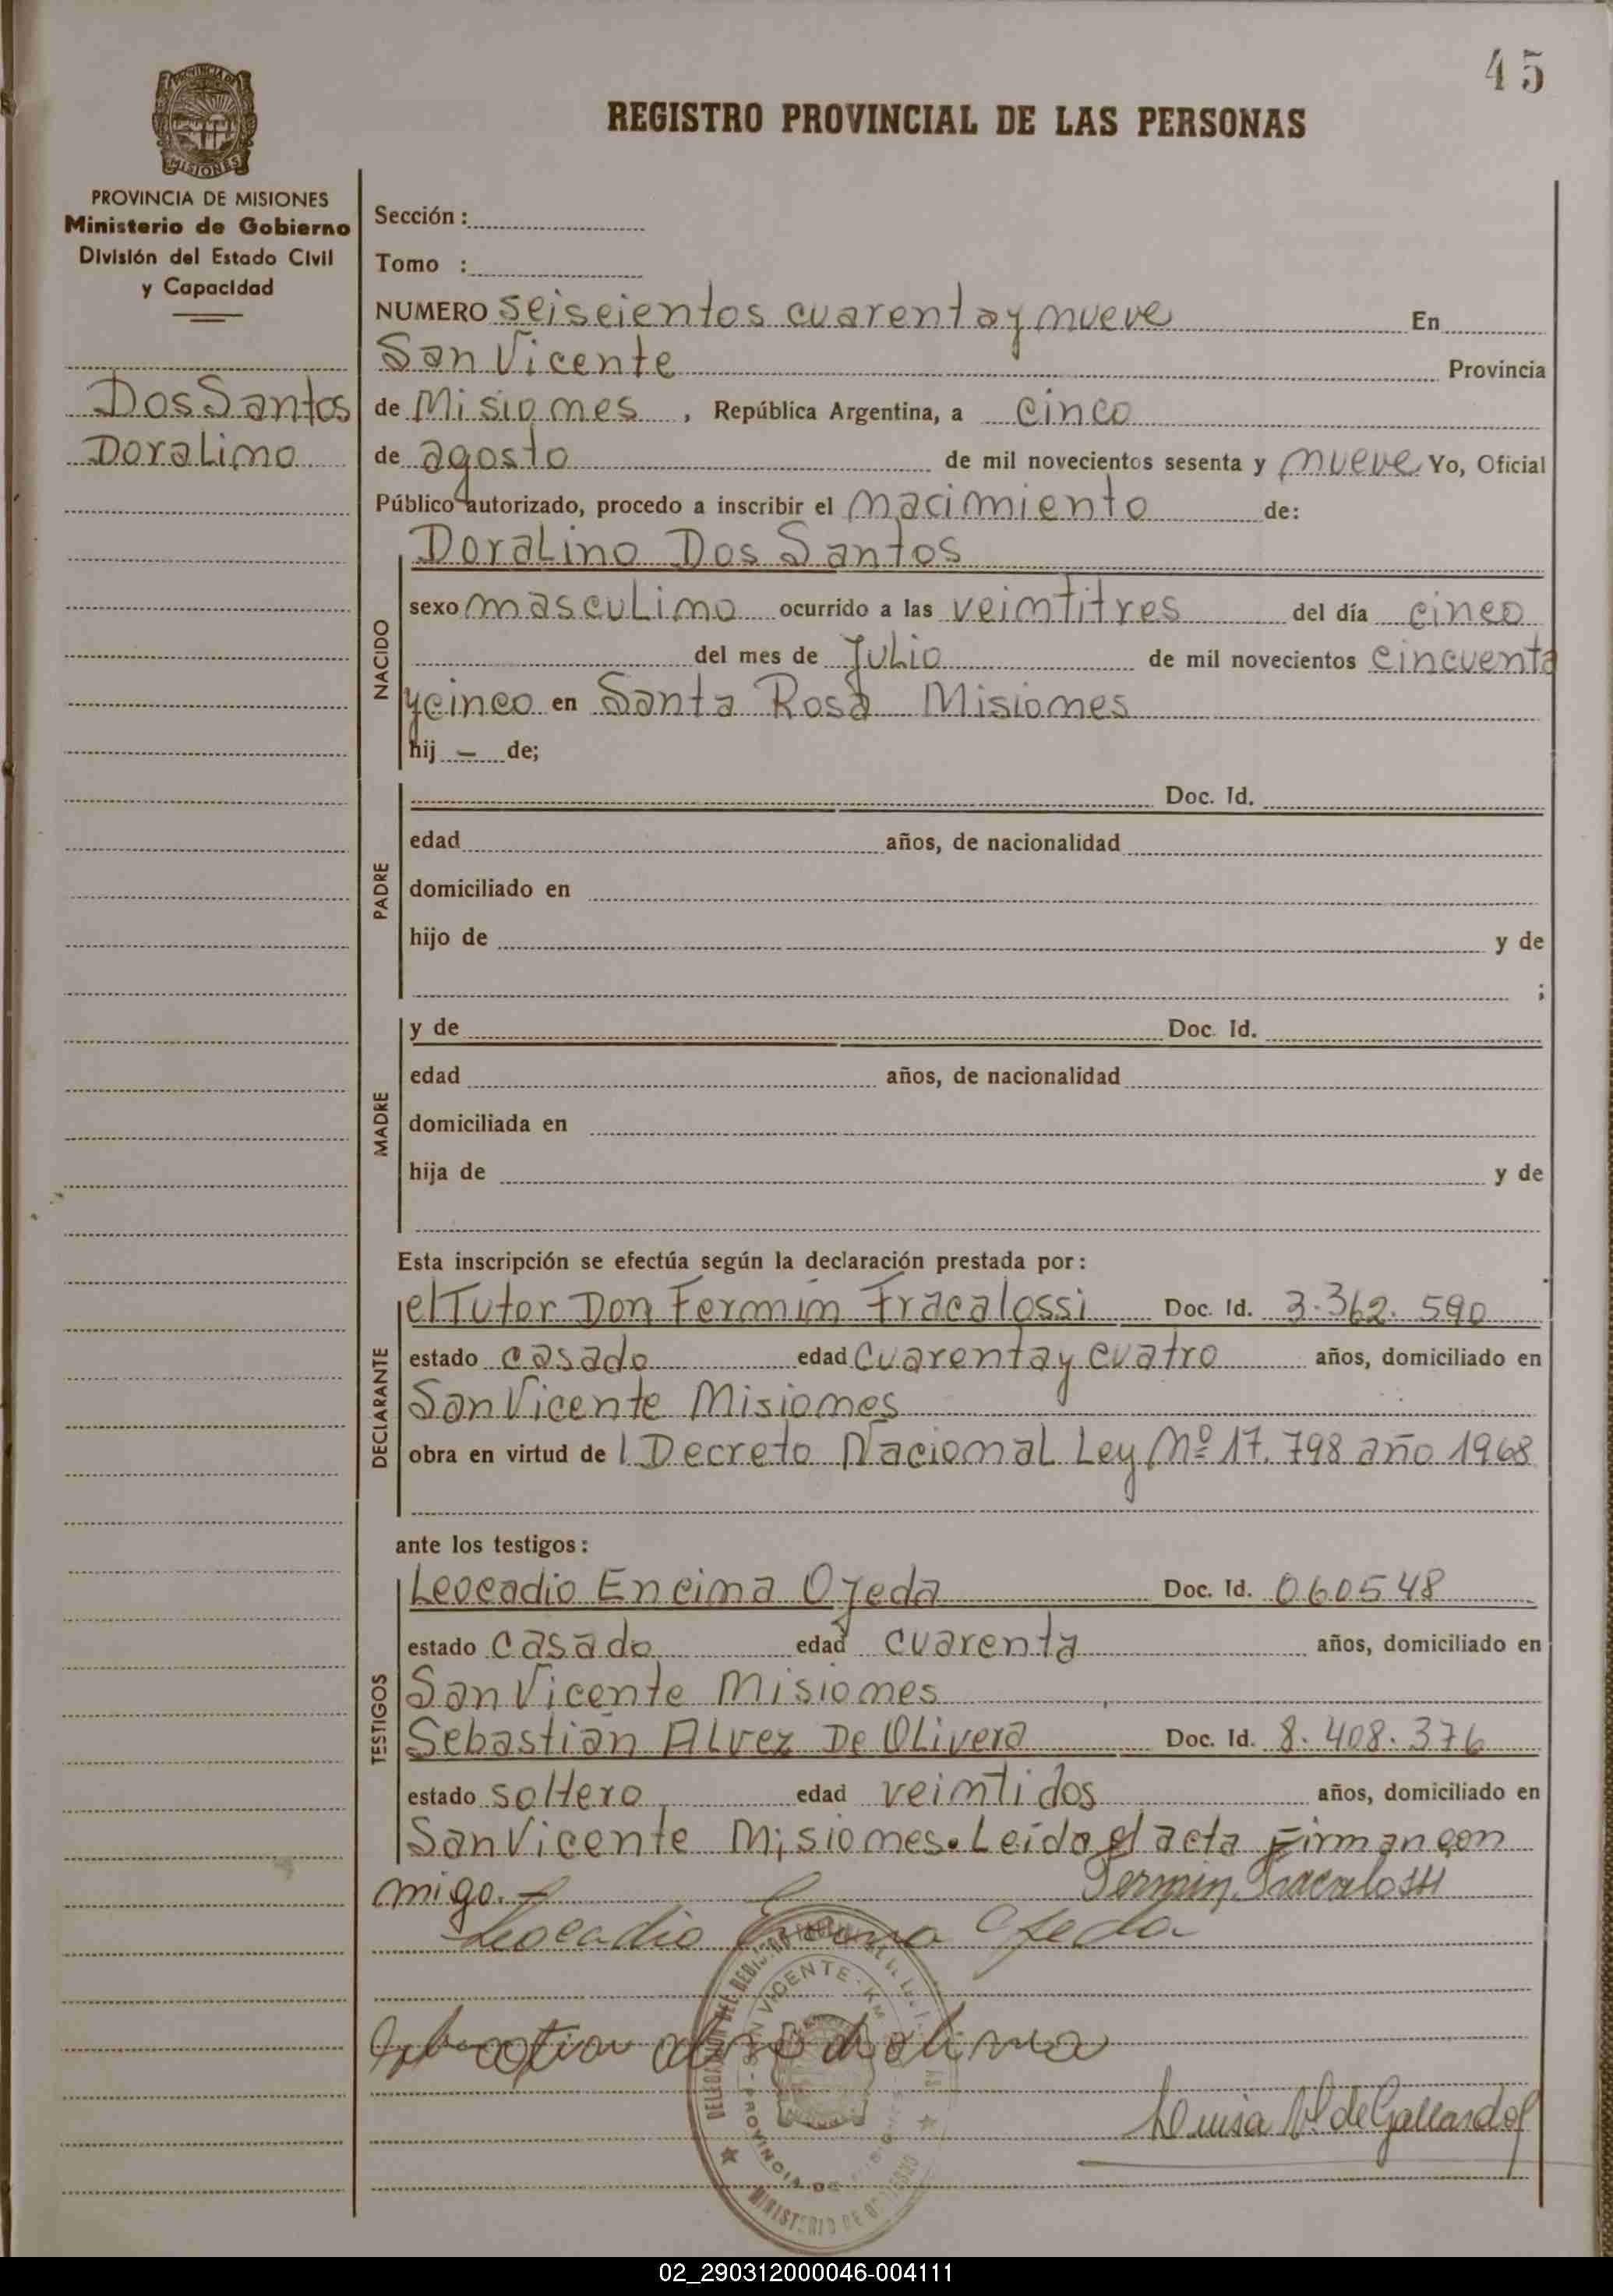 45
REGISTRO PROVINCIAL DE LAS PERSONAS
PROVINCIA DE
MISIONES
PROVINCIA DE MISIONES
Ministerio de Gobierno
División del Estado Civil
y Capacidad
Dos Santos
Doralino
Sección :
Tomo :
NUMERO seiscientos cuarenta y nueve En
San Vicente Provincia
de Misiones , República Argentina, a cinco
de agosto de mil novecientos sesenta y nueve Yo, Oficial
Público autorizado, procedo a inscribir el nacimiento de:
NACIDO
Doralino Dos Santos
sexo masculino ocurrido a las veintitres del día cinco
del mes de Julio de mil novecientos cincuenta
y cinco en Santa Rosa Misiones
hij — de;
PADRE
Doc. Id.
edad años, de nacionalidad
domiciliado en
hijo de y de
;
MADRE
y de Doc. Id.
edad años, de nacionalidad
domiciliada en
hija de y de
Esta inscripción se efectúa según la declaración prestada por :
DECLARANTE
el Tutor Don Fermín Fracalossi Doc. Id. 3.362.590
estado casado edad cuarenta y cuatro años, domiciliado en
San Vicente Misiones
obra en virtud de l Decreto Nacional Ley Nº 17.798 año 1968
ante los testigos :
TESTIGOS
Leocadio Encina Ojeda Doc. Id. 060548
estado casado edad cuarenta años, domiciliado en
San Vicente Misiones
Sebastián Alvez De Olivera Doc. Id. 8.408.376
estado soltero edad veintidos años, domiciliado en
San Vicente Misiones. Leída el acta firman con
migo.-
Fermin Fracalossi
Leocadio Encina Ojeda
SAN VICENTE
PROVINCIA DE
MINISTERIO DE GOBIERNO
Luisa de Gallardo
02_290312000046-004111